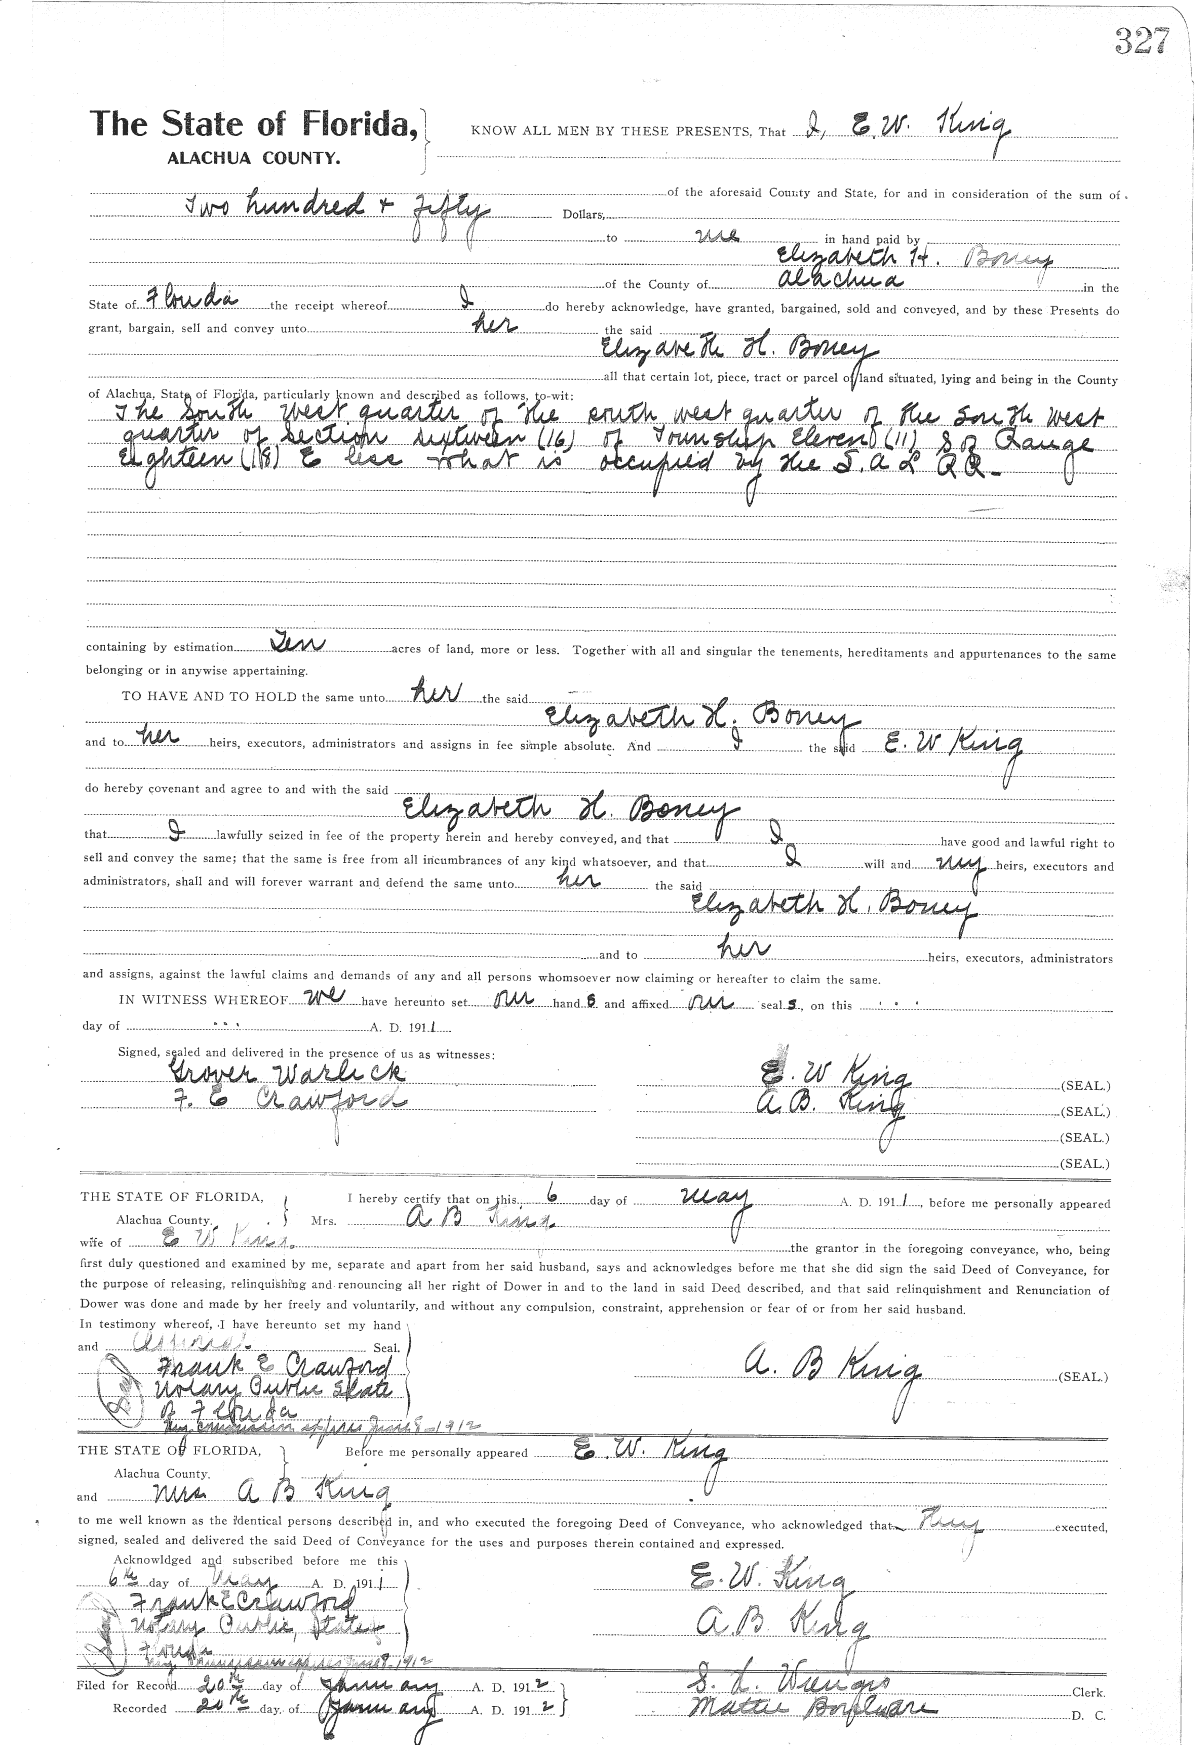 327
The State of Florida,
ALACHUA COUNTY.
KNOW ALL MEN BY THESE PRESENTS, That I, E.W. King
of the aforesaid County and State, for and in consideration of the sum of
Two hundred + fifty Dollars,
to me in hand paid by
Elizabeth H. Boney
of the County of Alachua in the
State of Florida the receipt whereof I do hereby acknowledge, have granted, bargained, sold and conveyed, and by these Presents do
grant, bargain, sell and convey unto her the said
Elizabeth H. Boney
all that certain lot, piece, tract or parcel of land situated, lying and being in the County
of Alachua, State of Florida, particularly known and described as follows, to-wit:
The South West quarter of the south west quarter of the South West
quarter of Section sixteen (16) of Township Eleven (11) S of Range
Eighteen (18) E less what is occupied by the S. A L RR-
containing by estimation Ten acres of land, more or less. Together with all and singular the tenements, hereditaments and appurtenances to the same
belonging or in anywise appertaining.
TO HAVE AND TO HOLD the same unto her the said
Elizabeth H. Boney
and to her heirs, executors, administrators and assigns in fee simple absolute. And I the said E. W King
do hereby covenant and agree to and with the said
Elizabeth H. Boney
that I lawfully seized in fee of the property herein and hereby conveyed, and that I have good and lawful right to
sell and convey the same; that the same is free from all incumbrances of any kind whatsoever, and that I will and my heirs, executors and
administrators, shall and will forever warrant and defend the same unto her the said
Elizabeth H. Boney
and to her heirs, executors, administrators
and assigns, against the lawful claims and demands of any and all persons whomsoever now claiming or hereafter to claim the same.
IN WITNESS WHEREOF we have hereunto set our hand s and affixed our seal s, on this
day of A. D. 1911
Signed, sealed and delivered in the presence of us as witnesses:
Grover Warlick E. W King (SEAL.)
F. E Crawford A. B. King (SEAL.)
(SEAL.)
(SEAL.)
THE STATE OF FLORIDA, I hereby certify that on this 6 day of May A. D. 1911, before me personally appeared
Alachua County. Mrs. A B King
wife of E W King the grantor in the foregoing conveyance, who, being
first duly questioned and examined by me, separate and apart from her said husband, says and acknowledges before me that she did sign the said Deed of Conveyance, for
the purpose of releasing, relinquishing and renouncing all her right of Dower in and to the land in said Deed described, and that said relinquishment and Renunciation of
Dower was done and made by her freely and voluntarily, and without any compulsion, constraint, apprehension or fear of or from her said husband.
In testimony whereof, I have hereunto set my hand
and Seal.
Frank E Crawford A. B King (SEAL.)
Notary Public State
of Florida
My commission expires June 8-1912
THE STATE OF FLORIDA, Before me personally appeared E. W. King
Alachua County.
and Mrs A B King
to me well known as the identical persons described in, and who executed the foregoing Deed of Conveyance, who acknowledged that they executed,
signed, sealed and delivered the said Deed of Conveyance for the uses and purposes therein contained and expressed.
Acknowldged and subscribed before me this
6th day of May A. D. 1911 E. W. King
Frank E Crawford
Notary Public, State of A B. King
Florida
My commission expires June 8 1912
Filed for Record 20th day of January A. D. 1912 S. H. Clerk.
Recorded 20th day of January A. D. 1912 Mattie D. C.